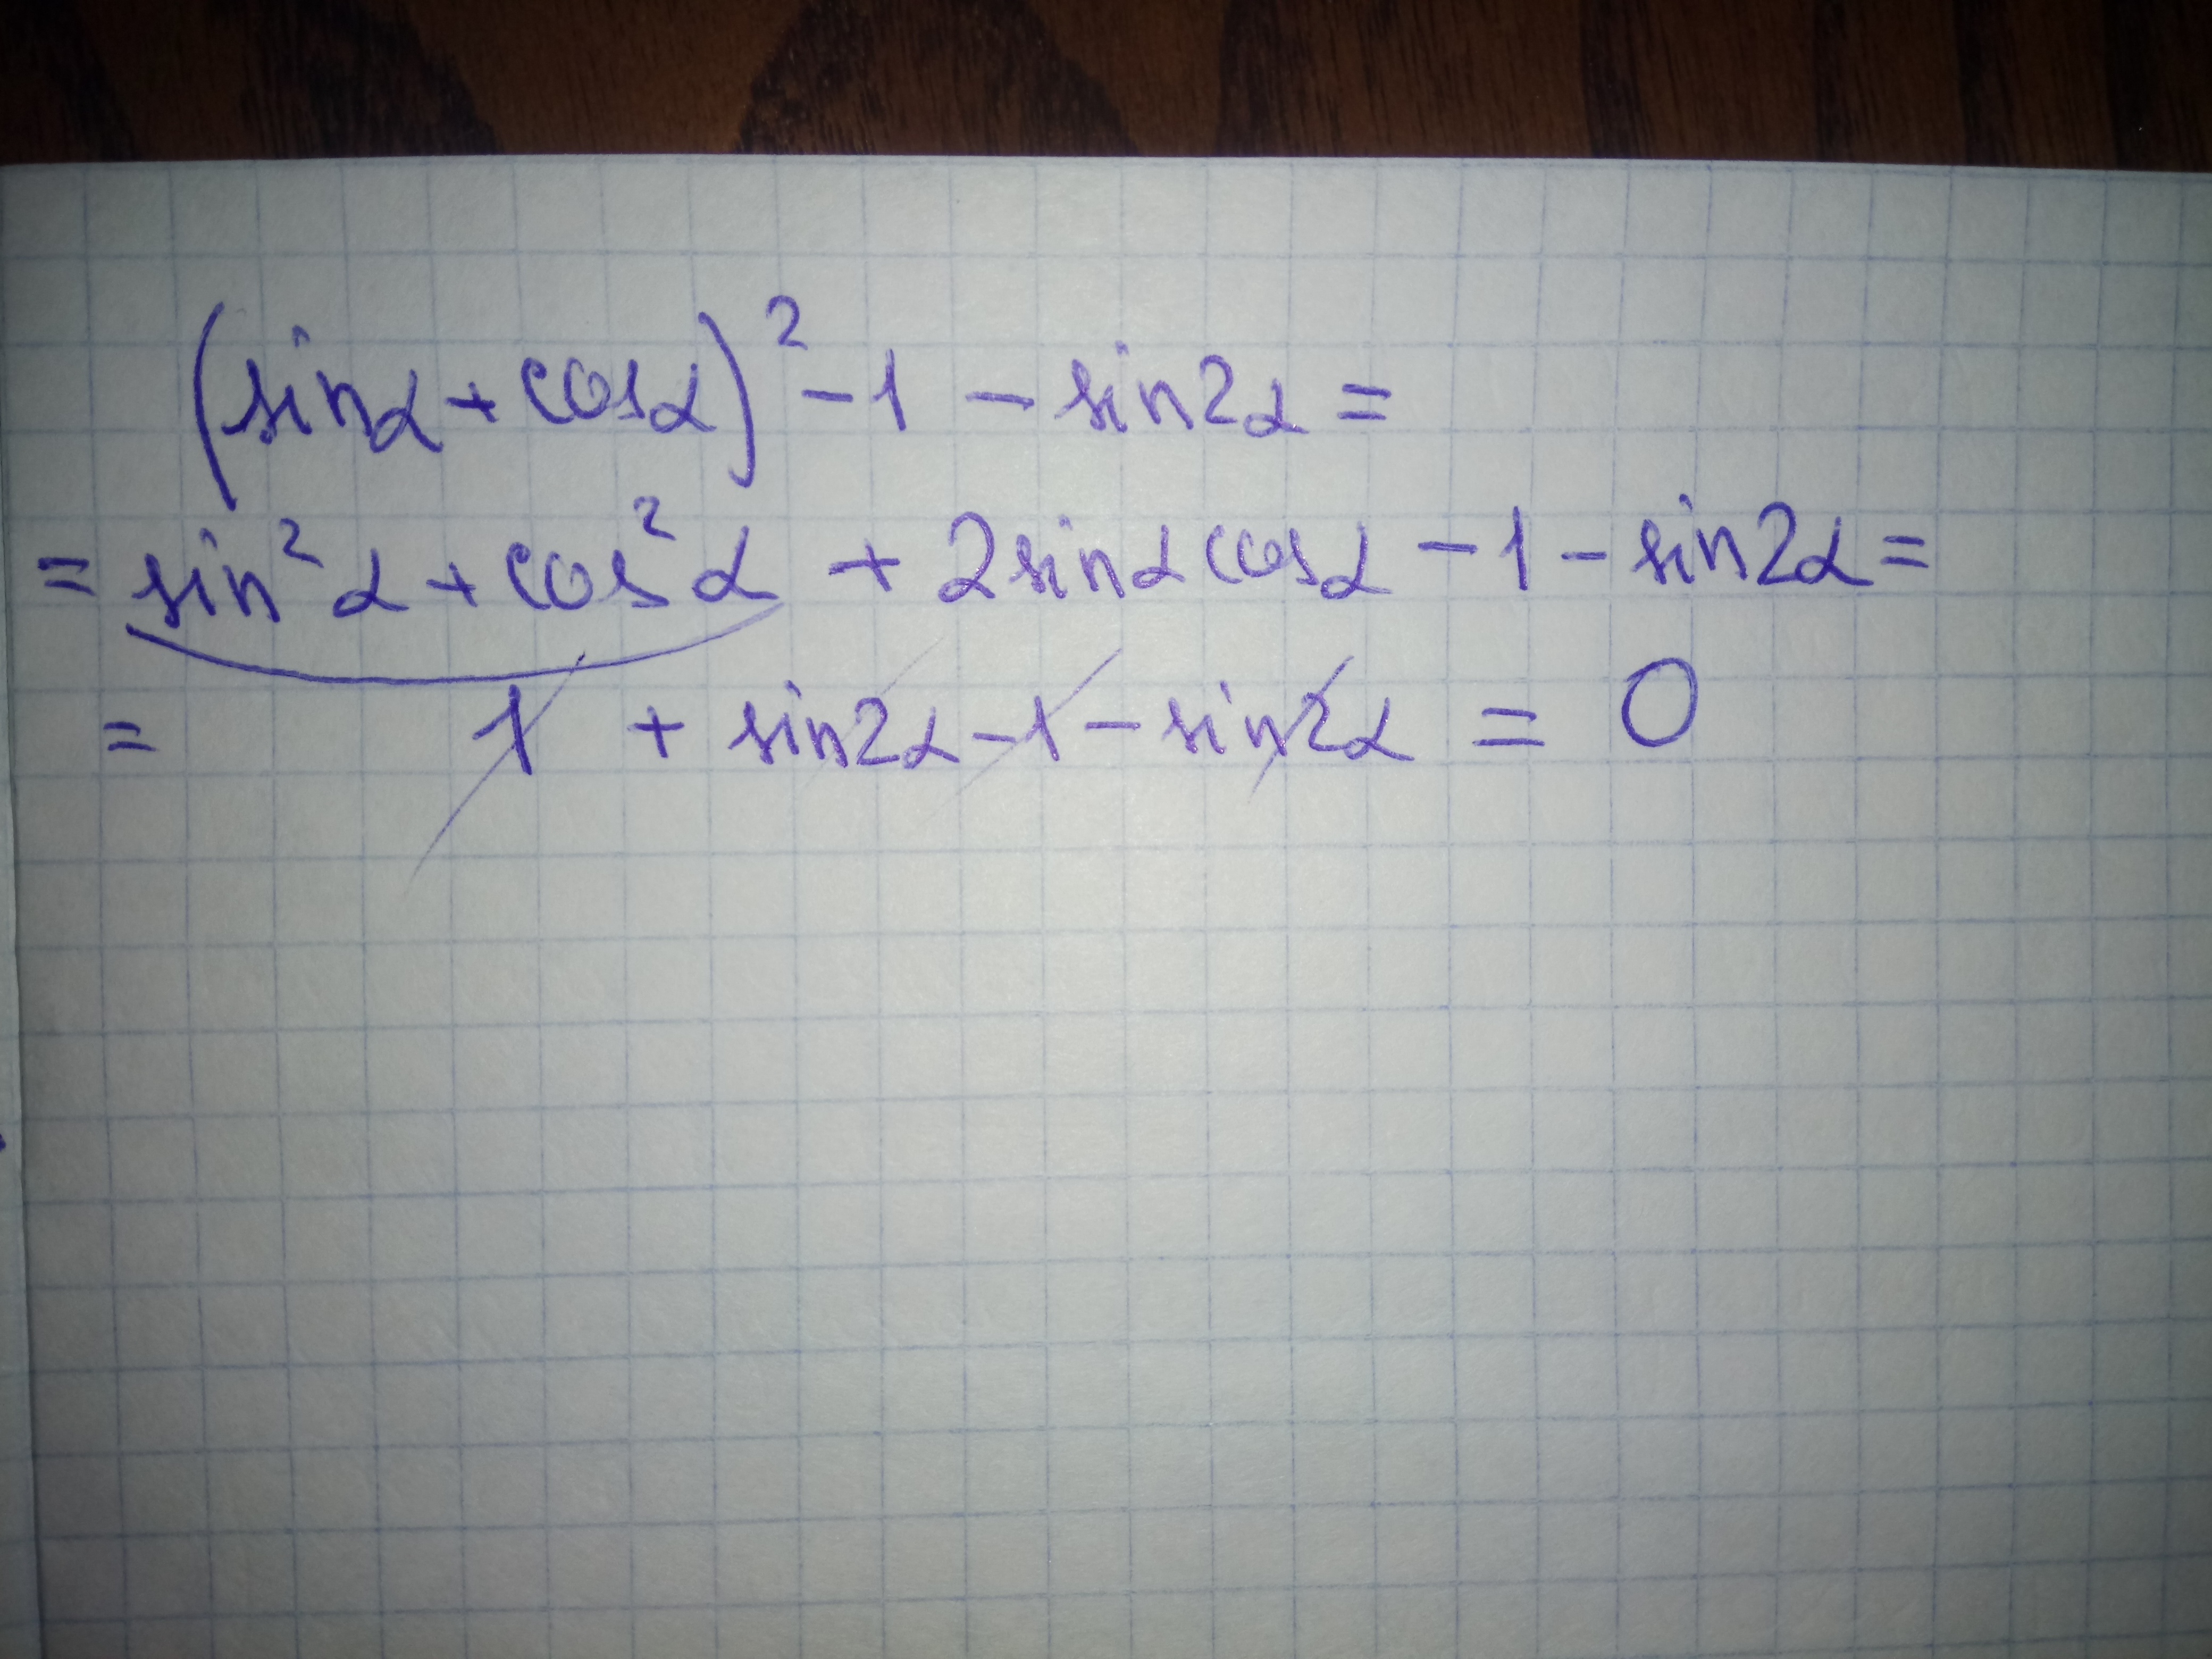 (sinα + cosα)² - 1 - sin2α =
= sin²α + cos²α + 2sinα cosα - 1 - sin2α =
= 1 + sin2α - 1 - sin2α = 0